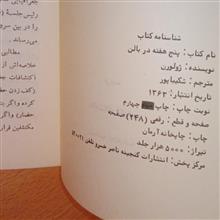 شناسنامه کتاب
نام کتاب : پنج هفته در بالن
نویسنده : ژولورن
مترجم : شکیباپور
تاریخ انتشار : ۱۳۶۳
نوبت چاپ : چاپ چهارم
صفحه و قطع : رقعی (۲۴۸) صفحه
چاپ : چاپخانه آرمان
تیراژ : ۵۰۰۰ هزار جلد
مرکز پخش : انتشارات گنجینه ناصر خسرو تلفن
رئیس جلسهٔ
را در بین سر
می‌رساند .
مطالبی
خلاصه‌ای از
(اکتشافات
(کف زدن
کرده و اگر
حضار) و اگر
مکتشفین قرار